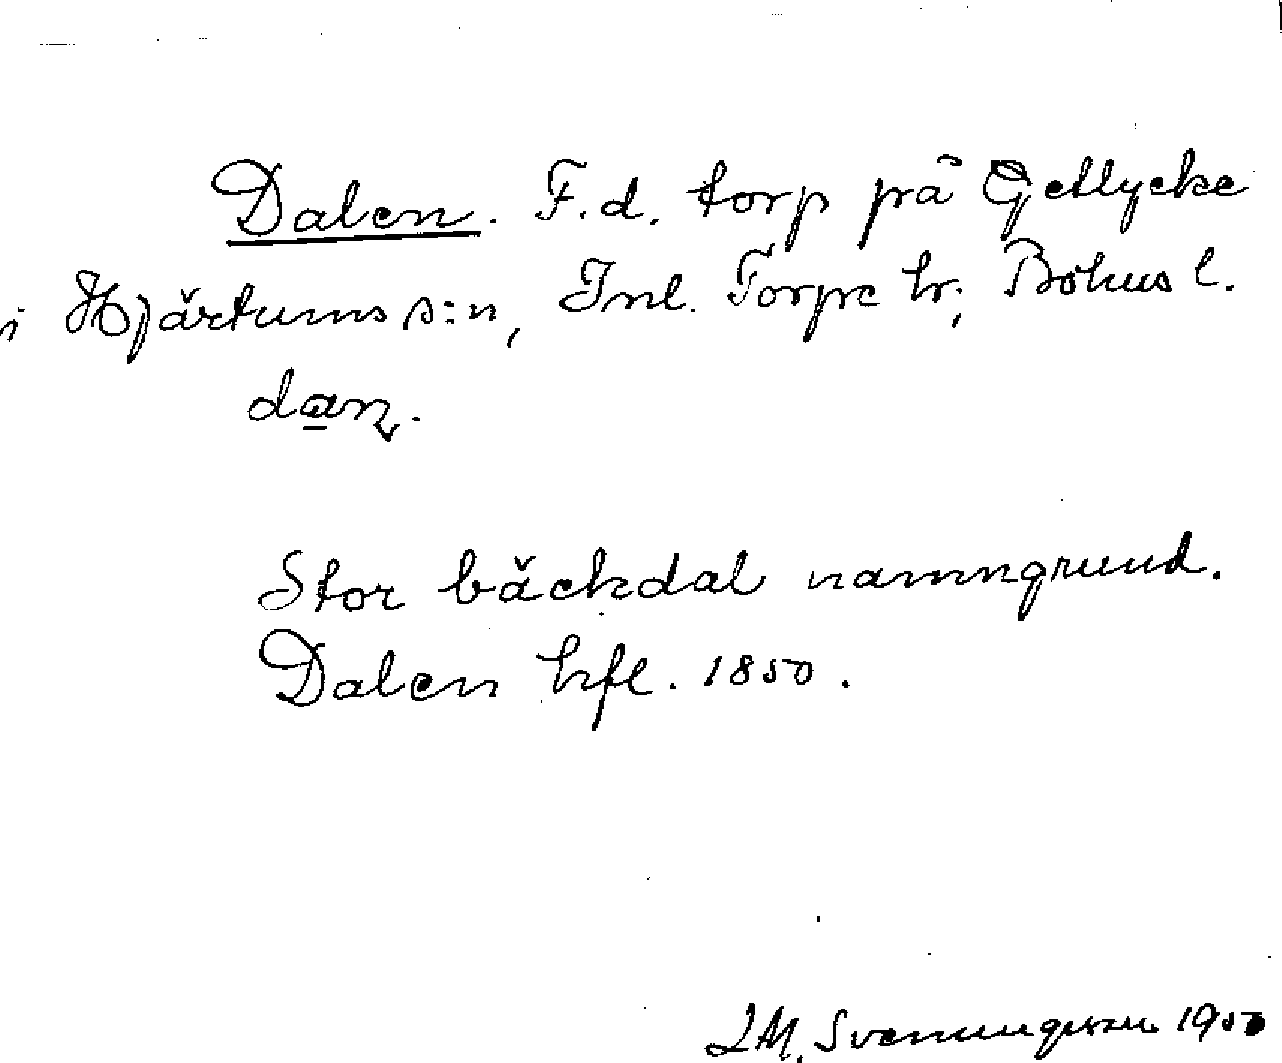 Dalen. F.d. torp på Getlycke
i Hjärtums s:n, Inl. Torpe hr; Bohus l.
dan.
Stor bäckdal namngrund.
Dalen hfl. 1850.
Svenungsson 1950